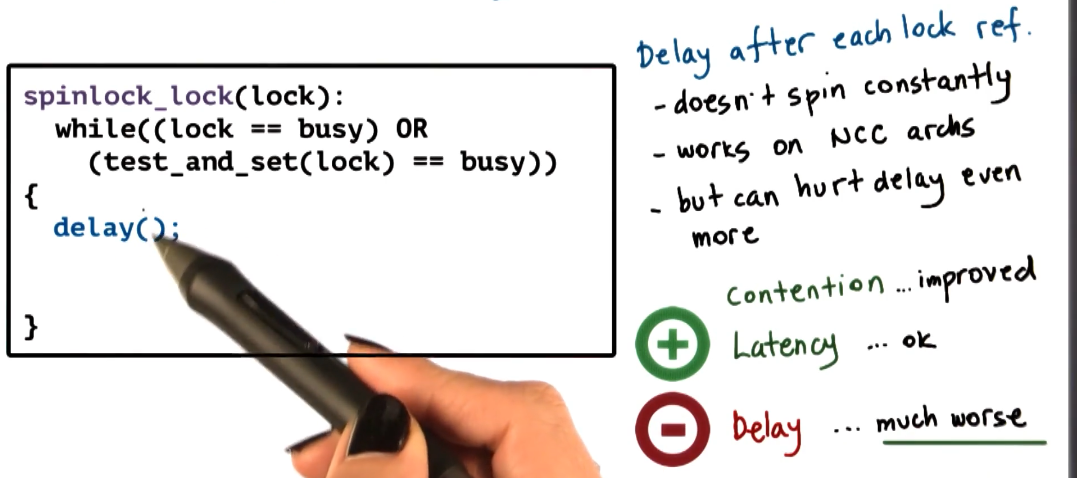 spinlock_lock(lock):
while((lock == busy) OR
(test_and_set(lock) == busy))
{
delay();
}
Delay after each lock ref.
- doesn't spin constantly
- works on NCC archs
- but can hurt delay even
more
Contention ... improved
+ Latency ... ok
- Delay ... much worse